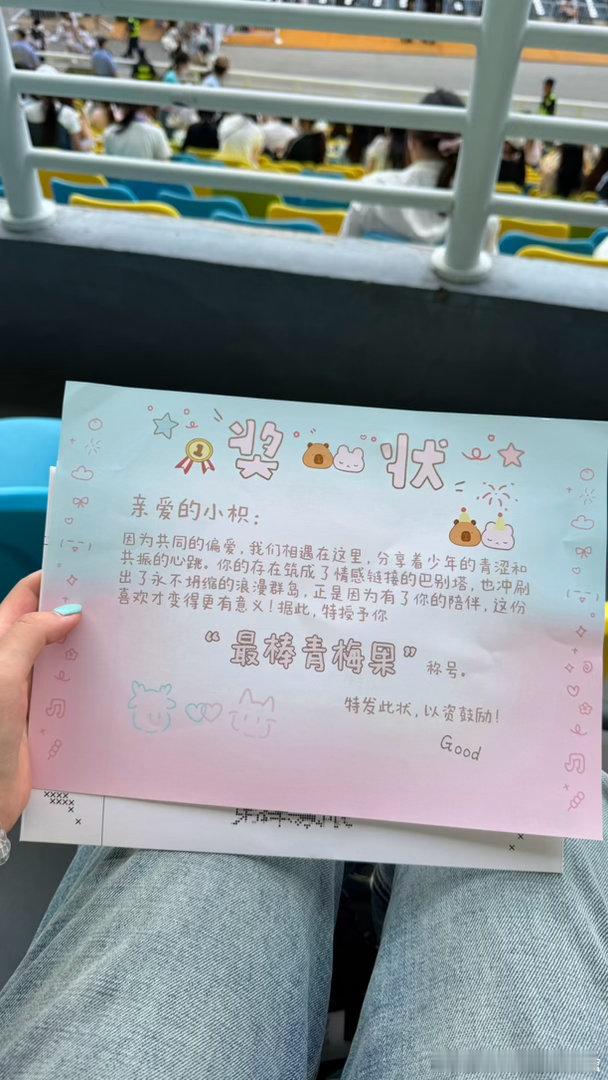 奖状
1
亲爱的小枳：
因为共同的偏爱，我们相遇在这里，分享着少年的青涩和
共振的心跳。你的存在筑成了情感链接的巴别塔，也冲刷
出了永不坍缩的浪漫群岛，正是因为有了你的陪伴，这份
喜欢才变得更有意义！据此，特授予你
“最棒青梅果”称号。
特发此状，以资鼓励！
Good